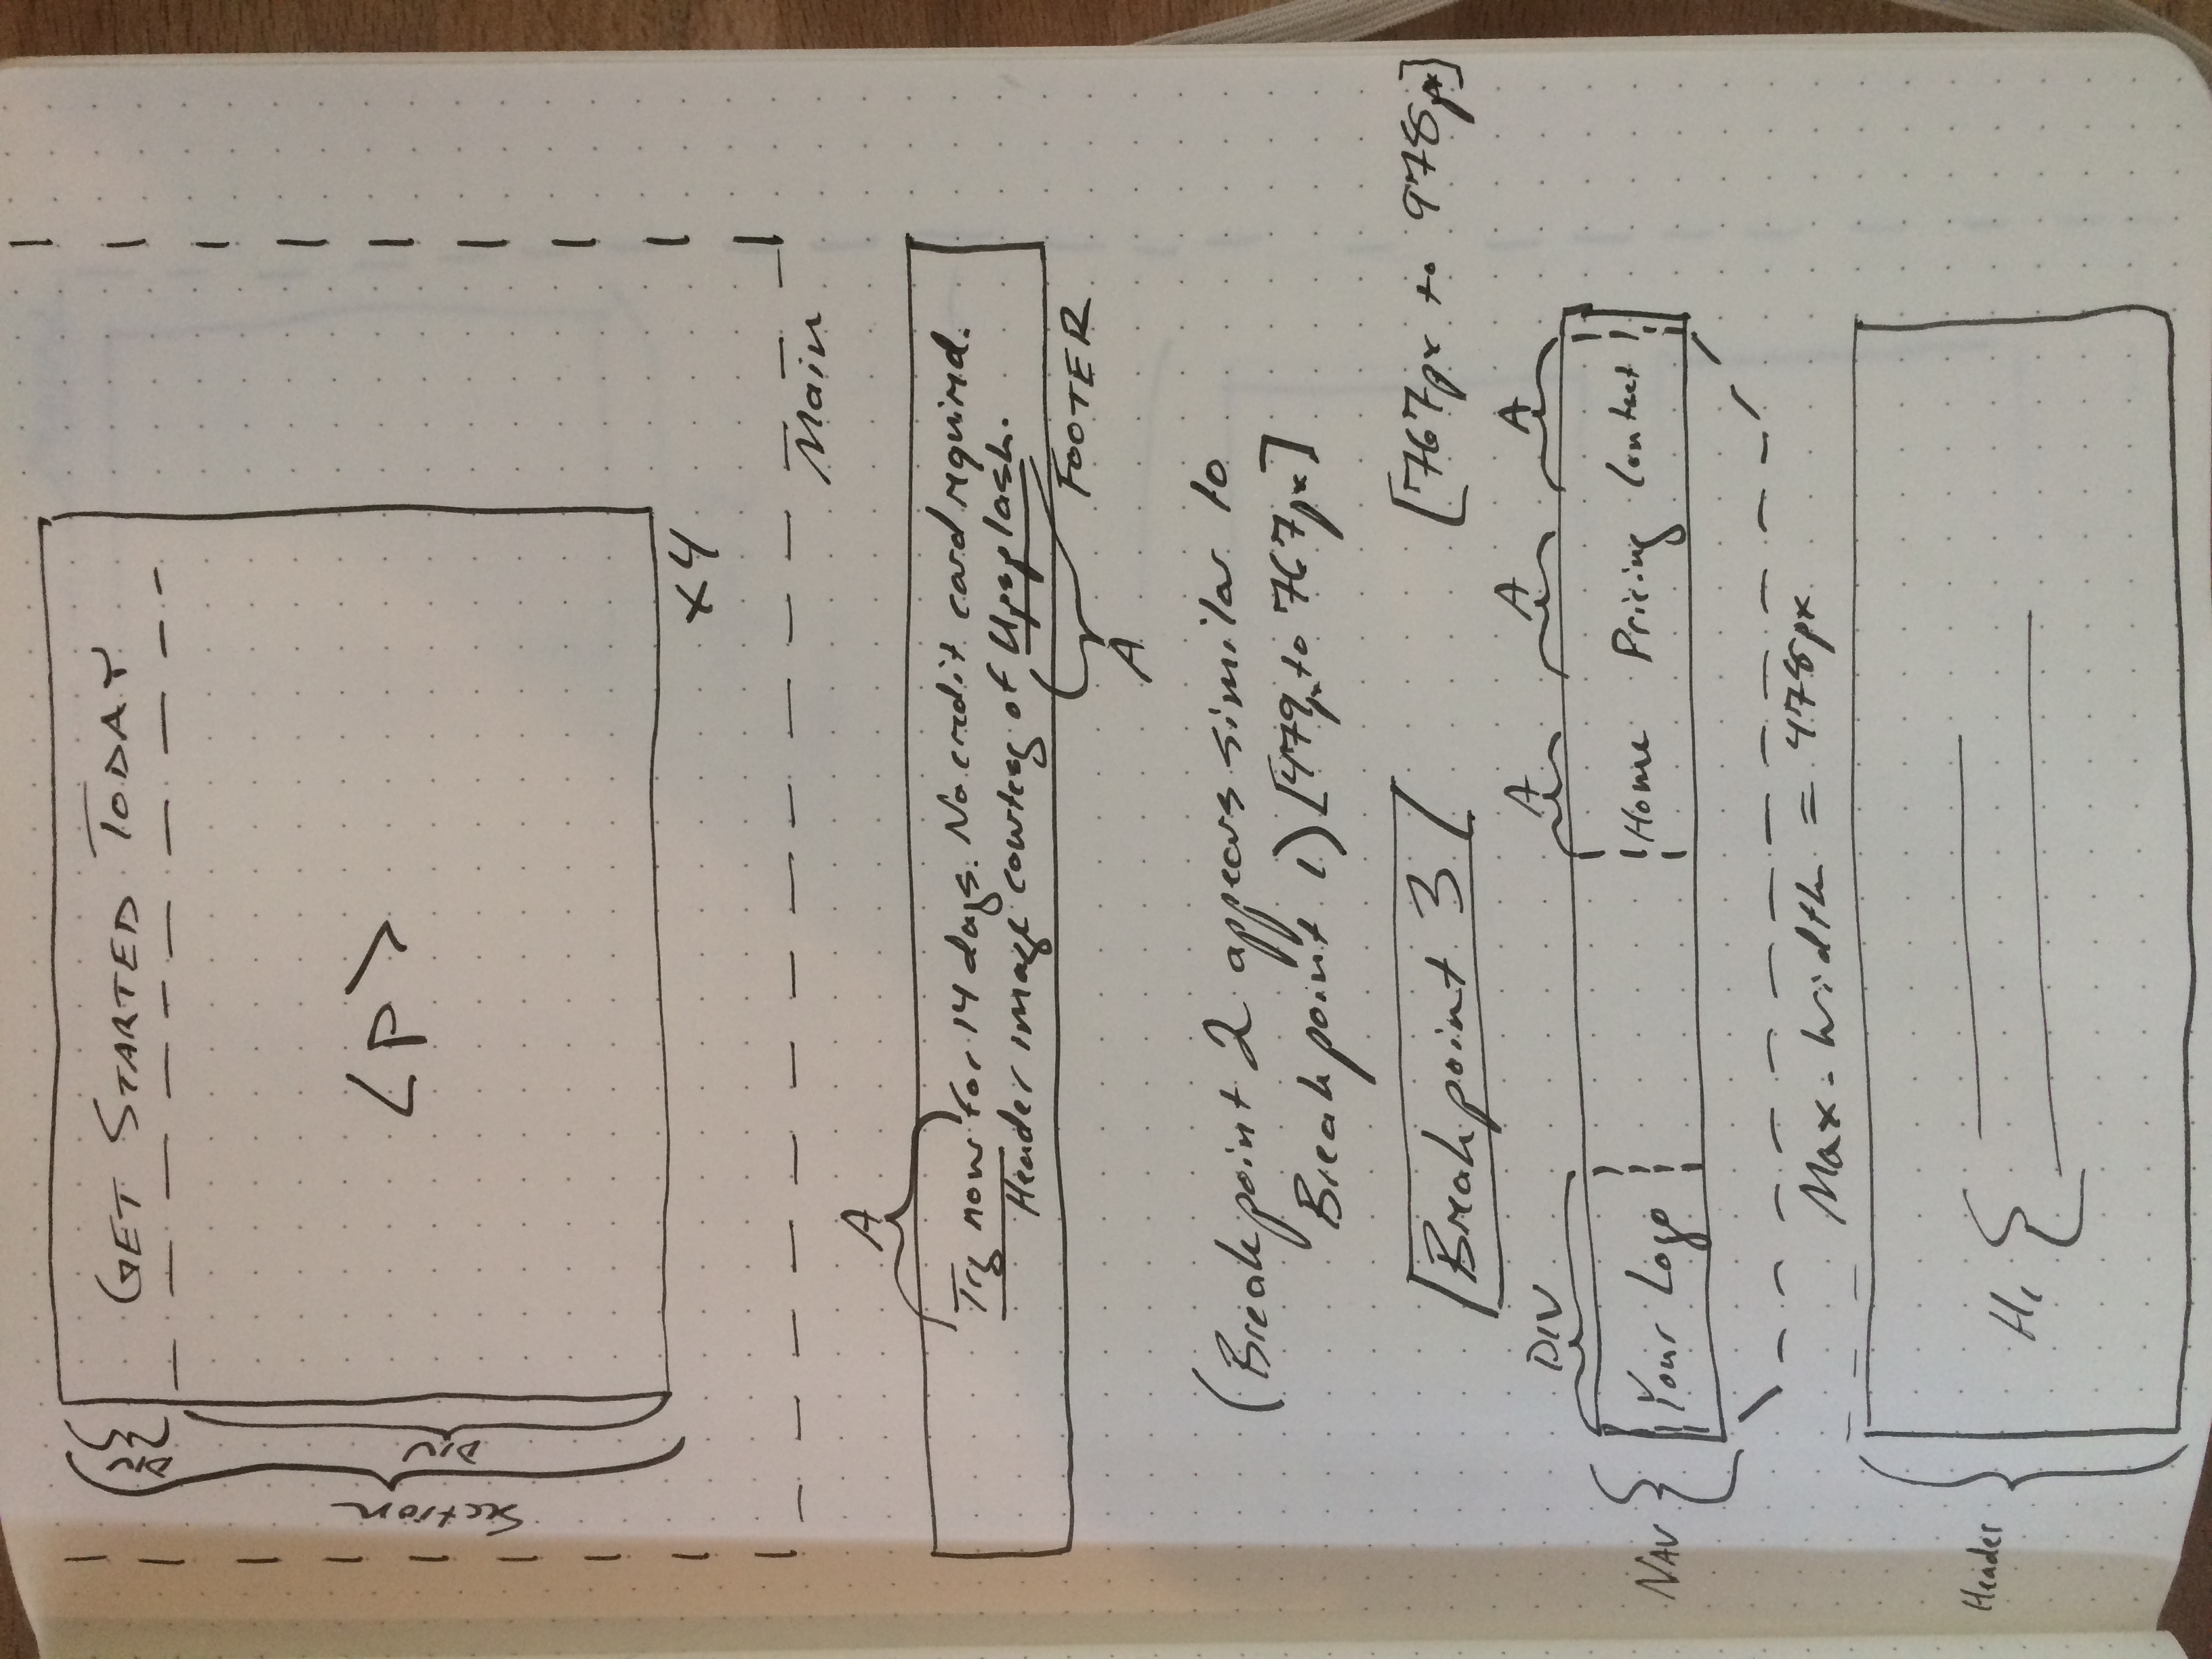 DIV
GET STARTED TODAY
Section
DIV
<p>
x4
Main
A
Try now for 14 days. No credit card required.
Header image courtesy of Upsplash.
A
FOOTER
(Breakpoint 2 appears similar to
Breakpoint 1) [479px to 767px]
Breakpoint 3
[767px to 978px]
DIV
A
A
A
NAV
Your Logo
Home Pricing Contact
Max-Width = 478px
Header
H1